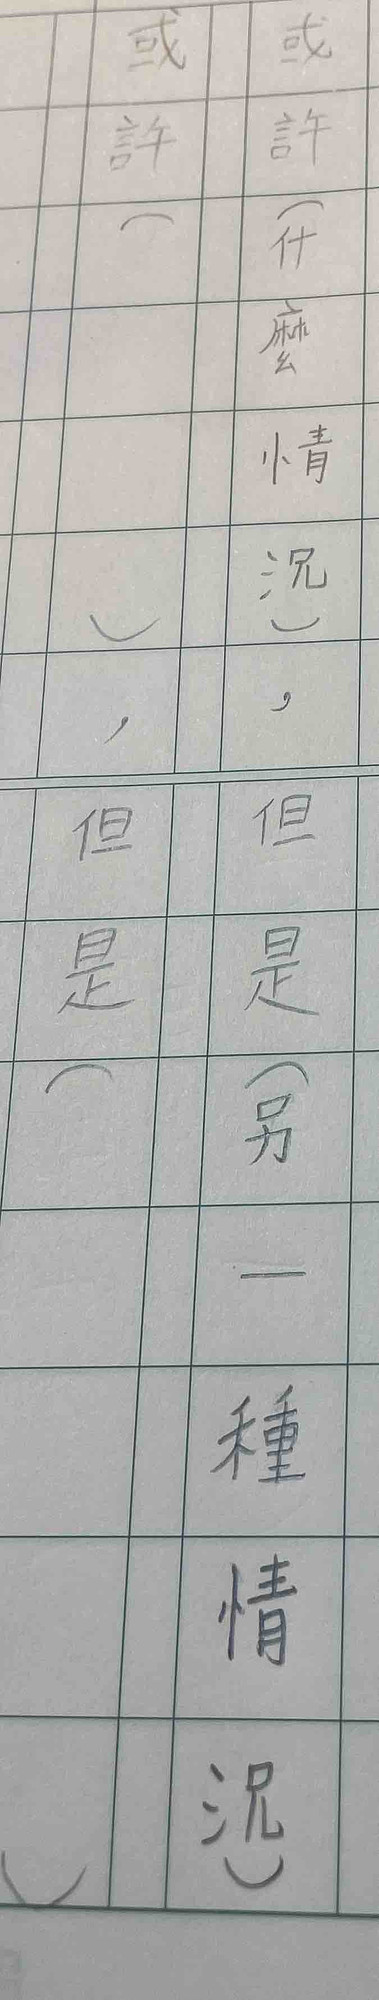 或許（什麼情況），但是（另一種情況）
或許（），但是（）